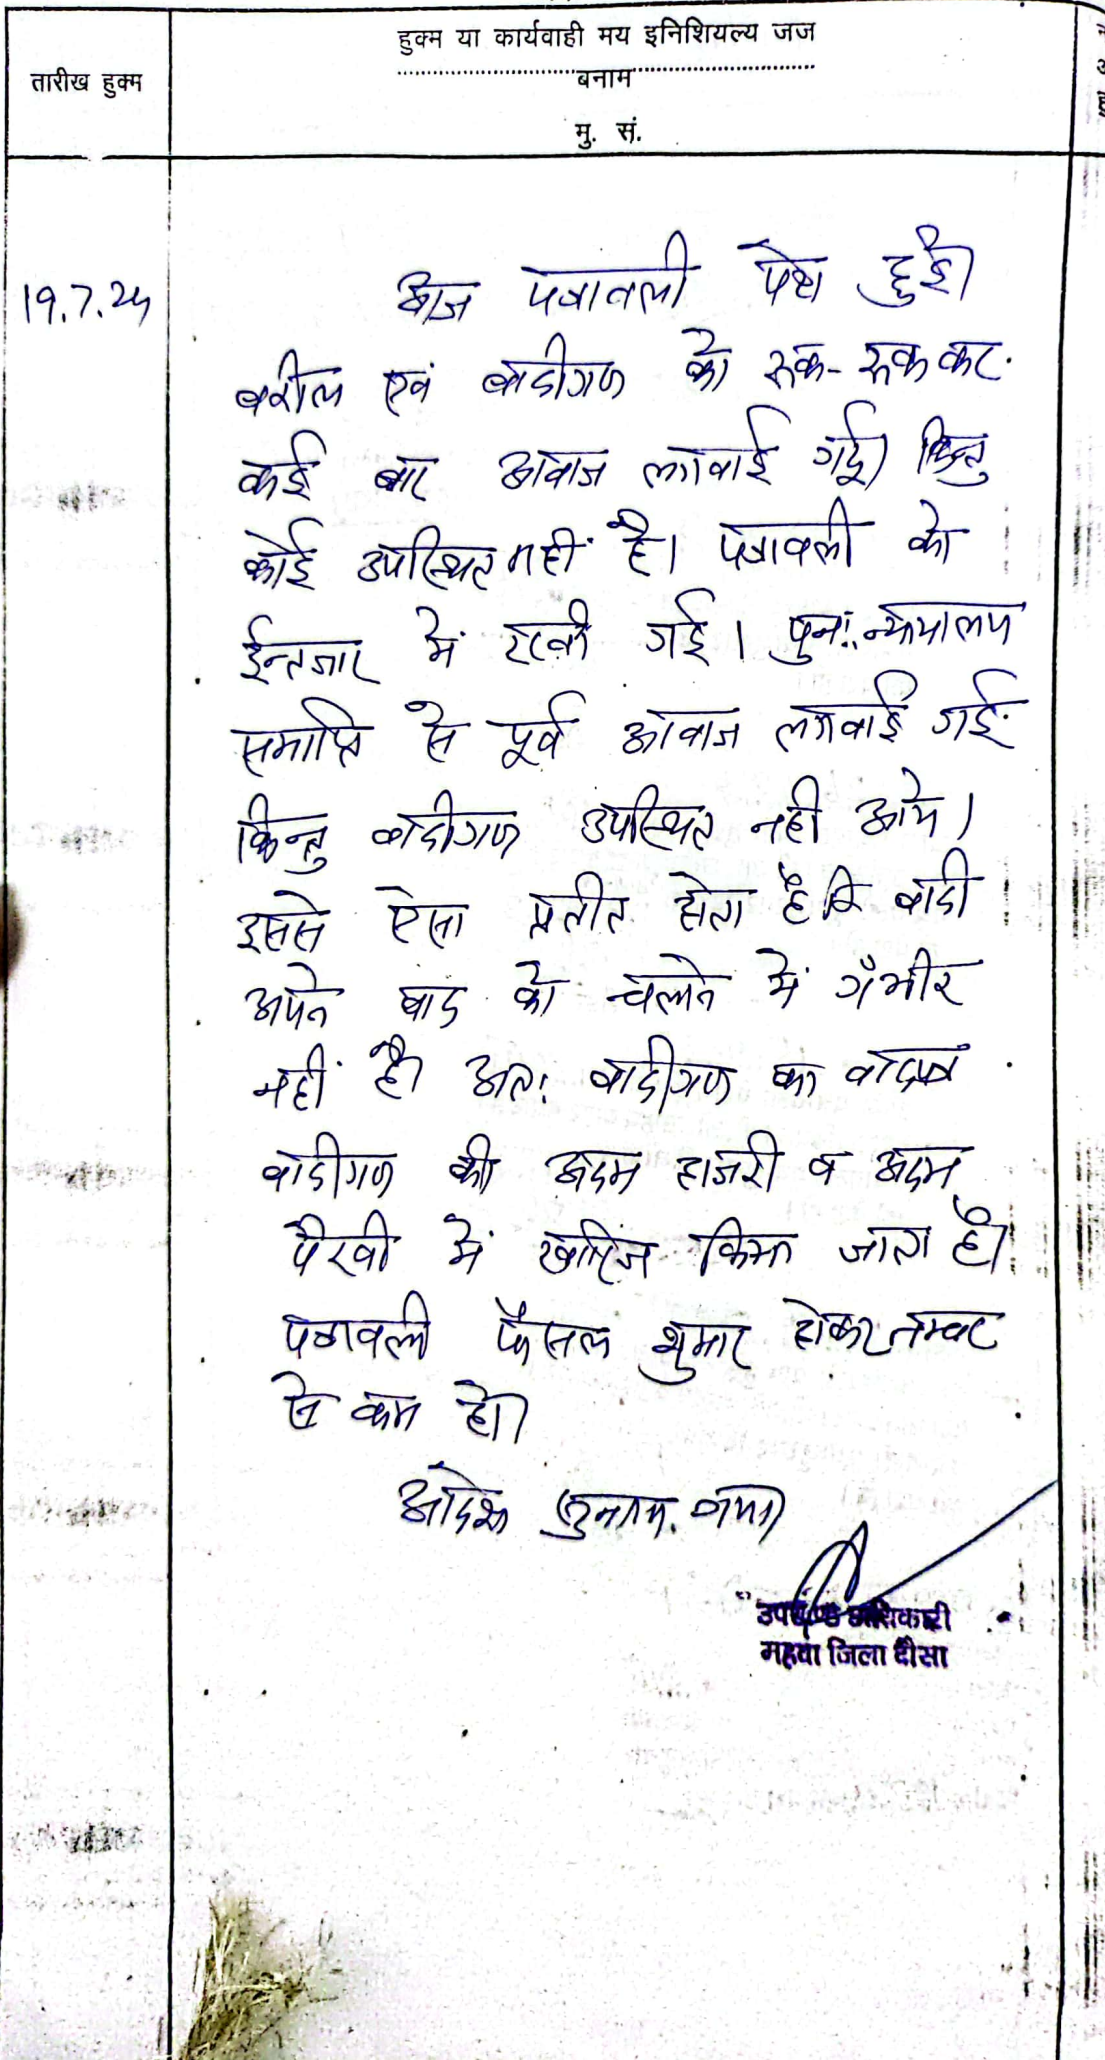 हुक्म या कार्यवाही मय इनिशियल्य जज
तारीख हुक्म
बनाम
मु. सं.
19.7.24
आज पत्रावली पेश हुई।
वकील एवं वादीगण को रूक-रूक कर
कई बार आवाज लगवाई गई। किन्तु
कोई उपस्थित नहीं है। पत्रावली को
ईन्तजार में रखी गई। पुनः न्यायालय
समाप्ति से पूर्व आवाज लगवाई गई
किन्तु वादीगण उपस्थित नही आये।
इससे ऐसा प्रतीत होता है कि वादी
अपने वाद को चलाने में गँभीर
नहीं है। अतः वादीगण का वादपत्र
वादीगण की अदम हाजरी व अदम
पैरवी में खारिज किया जाता है।
पत्रावली फैसल शुमार होकर नम्बर
से कम हो।
आदेश सुनाया गया।
उपखण्ड अधिकारी
महवा जिला दौसा